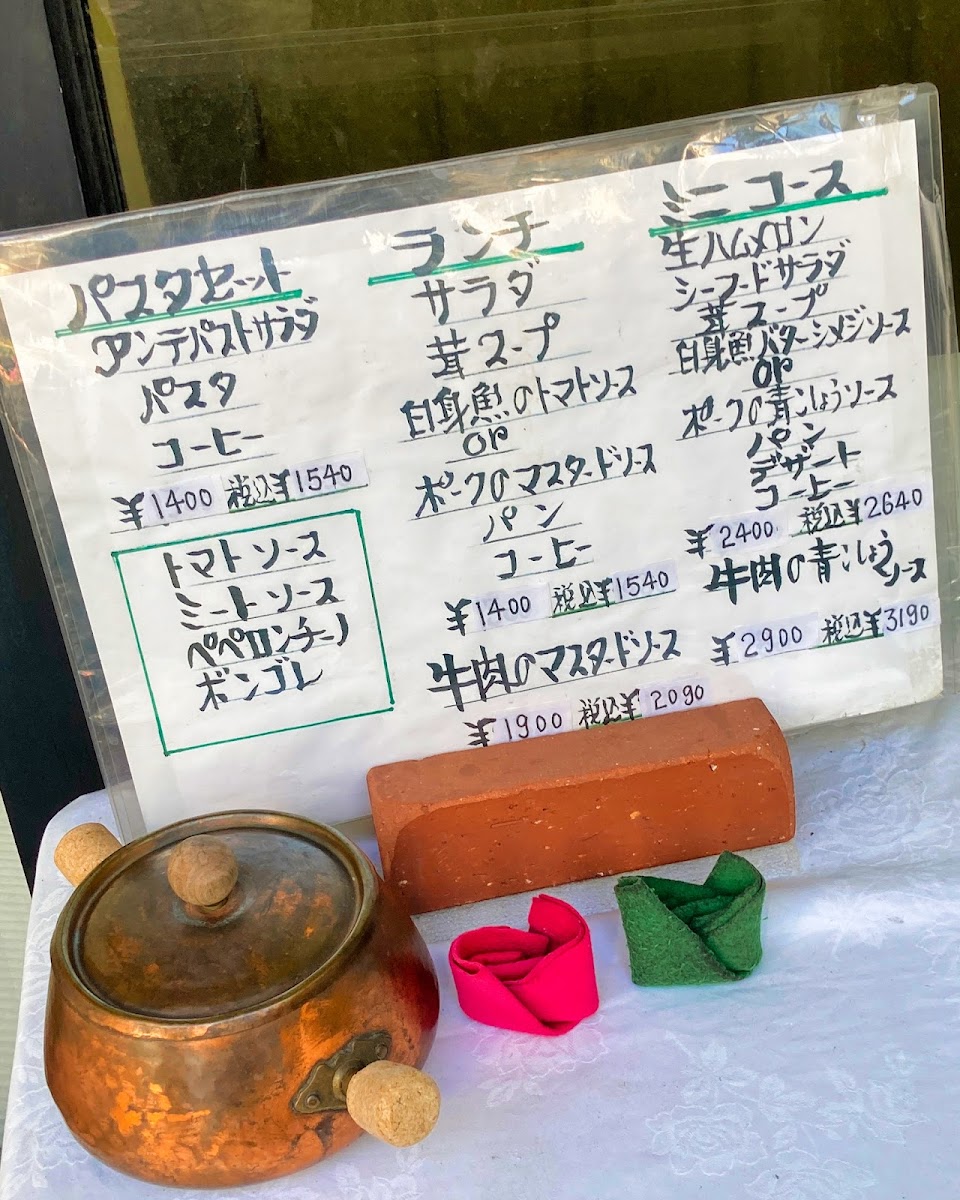 パスタセット
アンテパストサラダ
パスタ
コーヒー
¥1400 税込¥1540
トマトソース
ミートソース
ペペロンチーノ
ボンゴレ
ランチ
サラダ
茸スープ
白身魚のトマトソース
or
ポークのマスタードソース
パン
コーヒー
¥1400 税込¥1540
牛肉のマスタードソース
¥1900 税込¥2090
ミニコース
生ハムメロン
シーフードサラダ
茸スープ
白身魚バターシメジソース
or
ポークの青こしょうソース
パン
デザート
コーヒー
¥2400 税込¥2640
牛肉の青こしょうソース
¥2900 税込¥3190